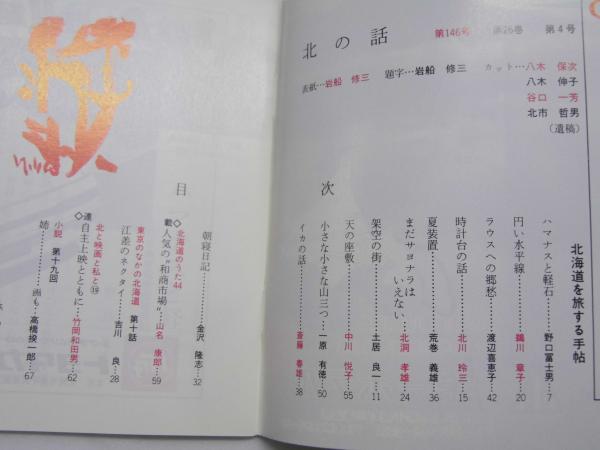 北の話
第146号 第26巻 第4号
表紙…岩船 修三 題字…岩船 修三 カット…八木 保次
八木 伸子
谷口 一芳
北市 哲男
(遺稿)
北海道を旅する手帖
目 次
ハマナスと軽石…野口冨士男…7
円い水平線…鵜川 章子…20
ラウスへの郷愁…渡辺喜恵子…42
時計台の話…北川 玲三…15
夏装置…荒巻 義雄…36
まだサヨナラはいえない…北洞 孝雄…24
架空の街…土居 良一…11
天の座敷…中川 悦子…55
小さな小さな山三つ…一原 有徳…50
イカの話…斎藤 春雄…38
朝寝日記…金沢 隆志…32
◇連載◇
北海道のうた44
人気の"和商市場"…山名 康郎…59
東京のなかの北海道 第十話
江差のネクタイ…吉川 良…28
北と映画と私と⑲
自主上映とともに…竹岡和田男…62
小説 第十九回
姉…画も・高橋揆一郎…67